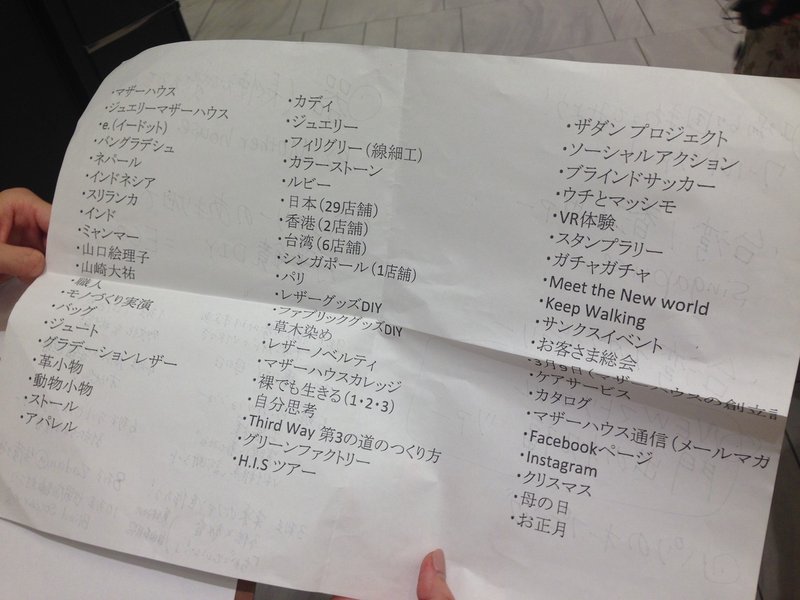 ・マザーハウス
・ジュエリーマザーハウス
・e.(イードット)
・バングラデシュ
・ネパール
・インドネシア
・スリランカ
・インド
・ミャンマー
・山口絵理子
・山崎大祐
・職人
・モノづくり実演
・バッグ
・ジュート
・グラデーションレザー
・革小物
・動物小物
・ストール
・アパレル
・カディ
・ジュエリー
・フィリグリー（線細工）
・カラーストーン
・ルビー
・日本（29店舗）
・香港（2店舗）
・台湾（6店舗）
・シンガポール（1店舗）
・パリ
・レザーグッズDIY
・ファブリックグッズDIY
・草木染め
・レザーノベルティ
・マザーハウスカレッジ
・裸でも生きる（1・2・3）
・自分思考
・Third Way 第3の道のつくり方
・グリーンファクトリー
・H.I.S ツアー
・ザダン プロジェクト
・ソーシャルアクション
・ブラインドサッカー
・ウチとマッシモ
・VR体験
・スタンプラリー
・ガチャガチャ
・Meet the New world
・Keep Walking
・サンクスイベント
・お客さま総会
・3月9日（マザーハウスの創立記
・ケアサービス
・カタログ
・マザーハウス通信（メールマガ
・Facebookページ
・Instagram
・クリスマス
・母の日
・お正月